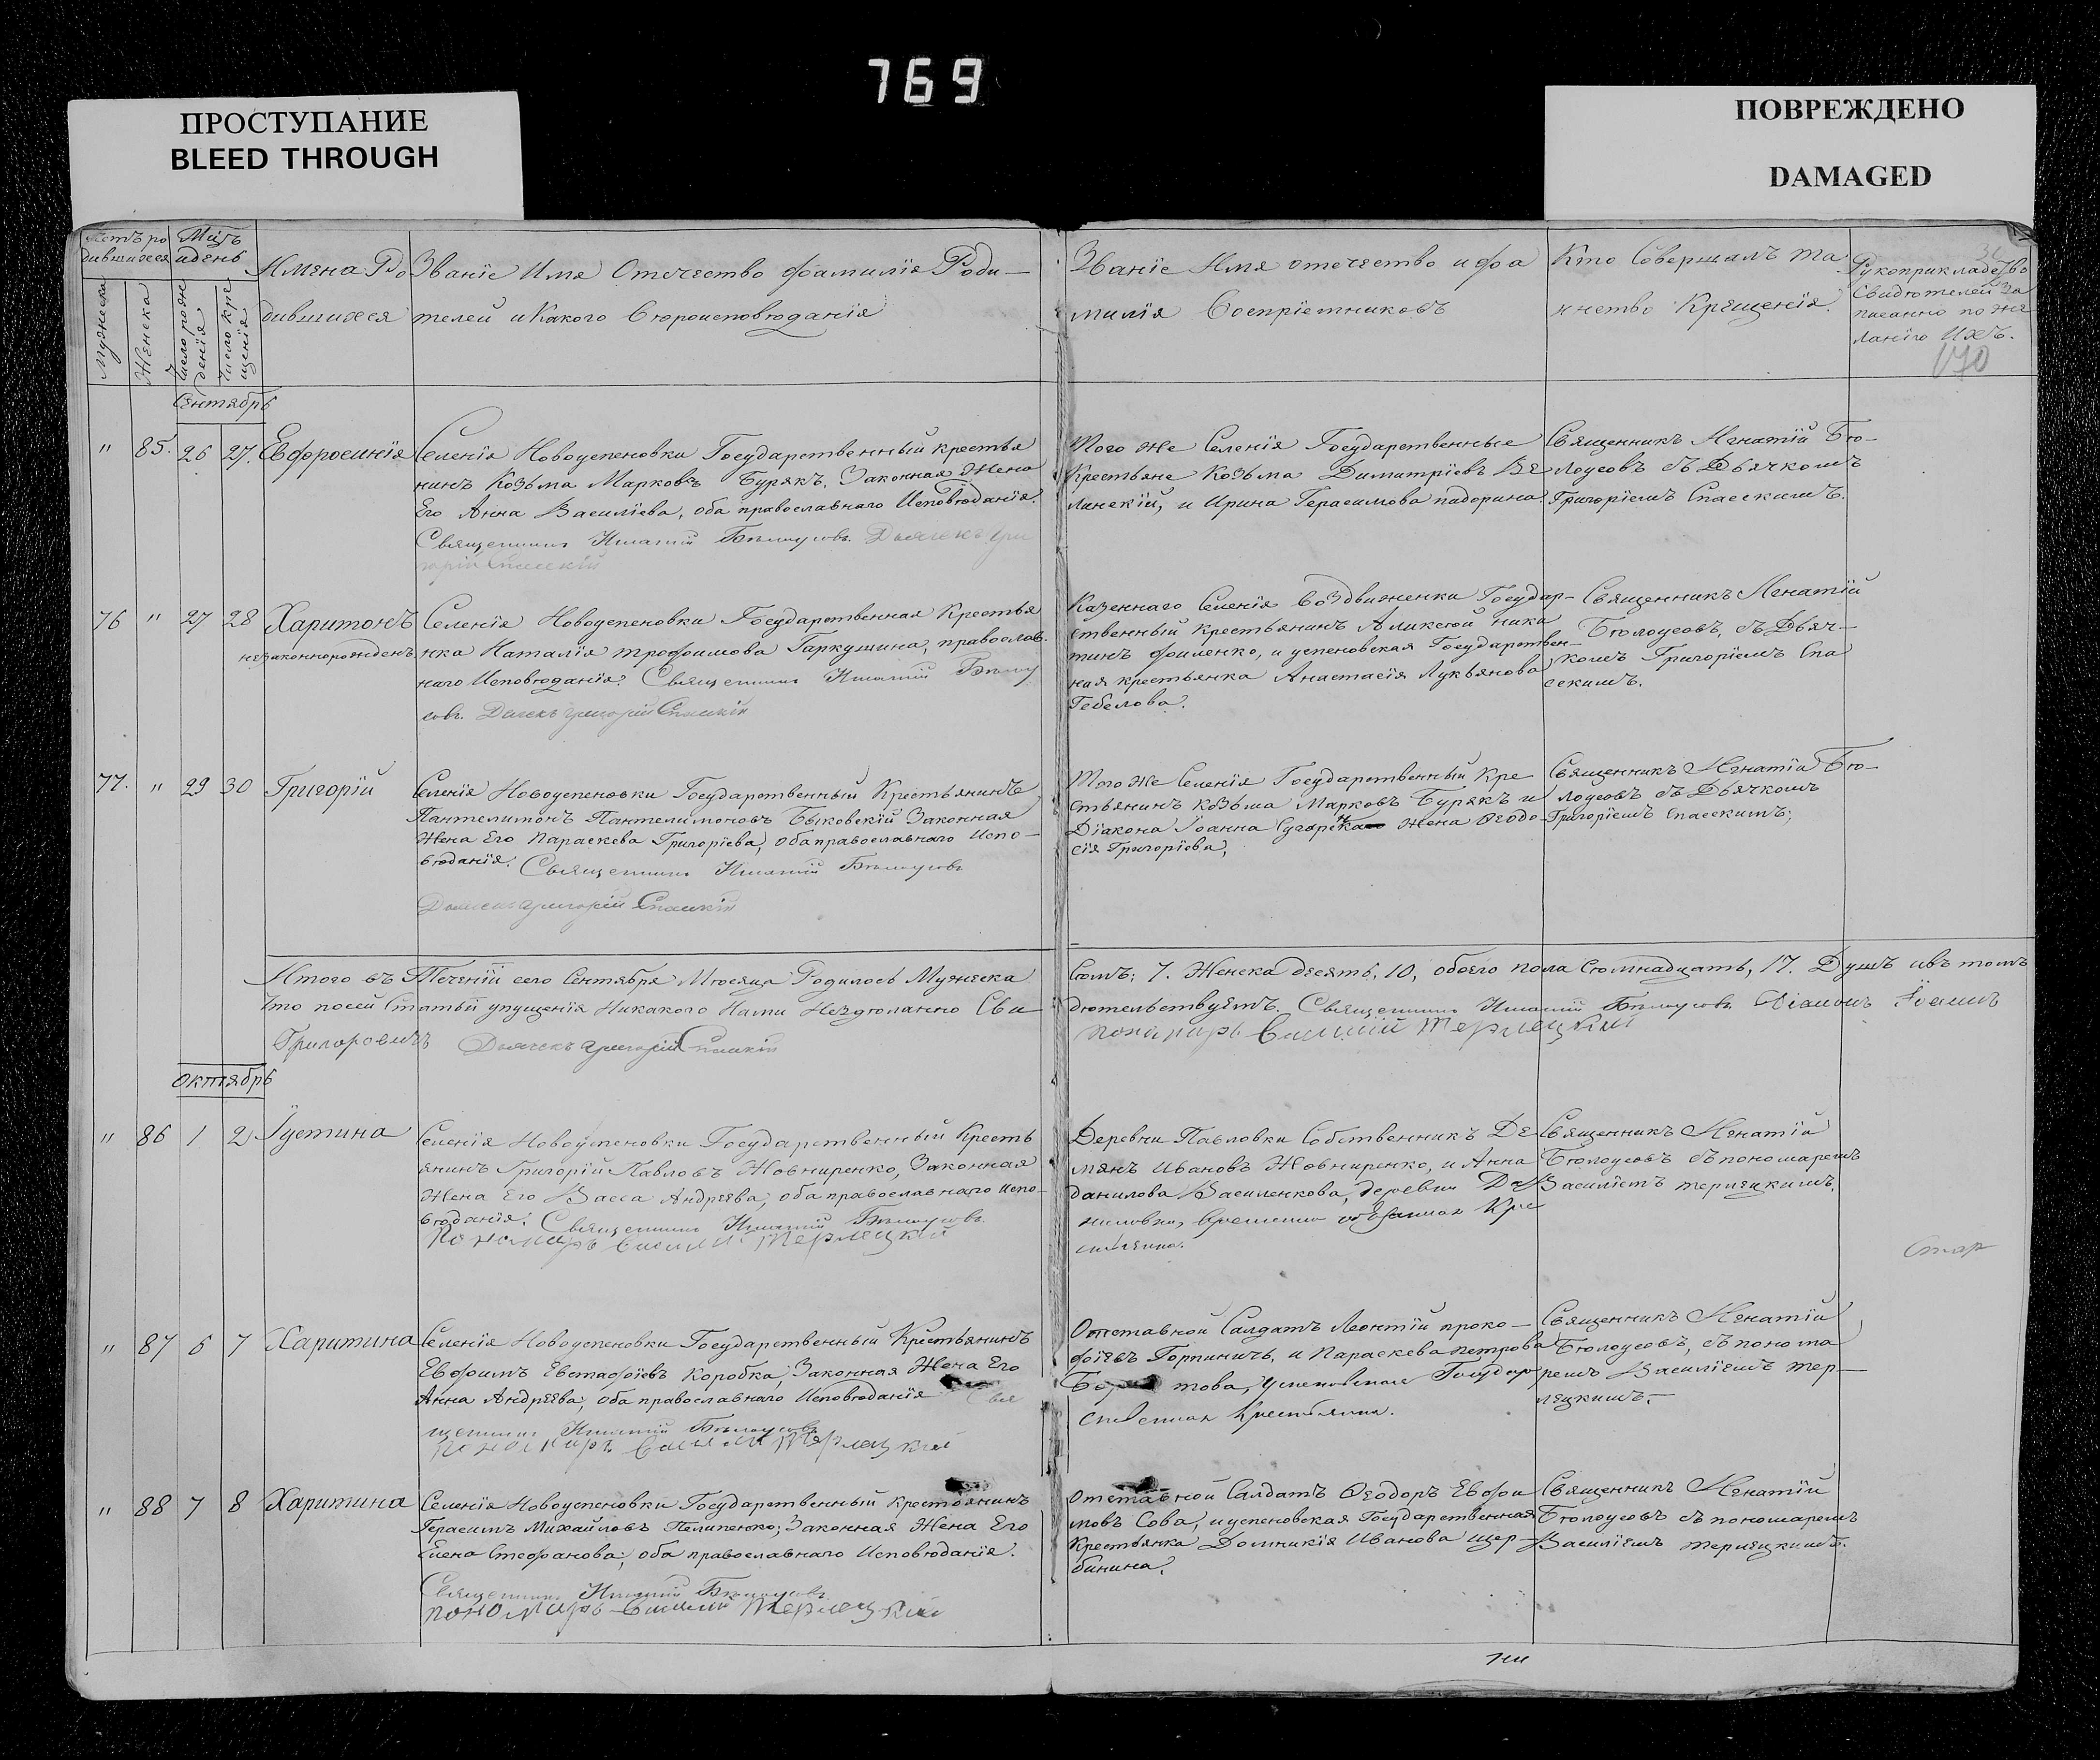 769
ПРОСТУПАНИЕ
BLEED THROUGH
ПОВРЕЖДЕНО
DAMAGED
Счетъ ро
дившихся
Мцъ
и день
Мужеска
Женска
Число рож
денія
Число кре
щенія
Имена Ро
дившихся
Званіе Имя Отечество фамилія Роди–
телей и Какого Вѣроисповѣданія
Званіе Имя отечество и фа
милія Воспріемниковъ
Кто Совершалъ та
инство Крещенія.
Рукоприкладство
Свидѣтелей за
писанно по же
ланію Ихъ.
170
Сентябрь
" 85. 26 27. Евфросинія
Селенія Новоуспеновки Государственный крестья
нинъ Козьма Марковъ Бурякъ, Законная Жена
Его Анна Василіева, оба православнаго Исповѣданія.
Священникъ Игнатій Бѣлоусовъ. Дьячекъ Гри
горій Спасскій
Того же Селенія Государственные
Крестьяне Козьма Димитріевъ Ве
линскій, и Ирина Герасимова падорина.
Священникъ Игнатій Бѣ–
лоусовъ съ Дьячкомъ
Григоріемъ Спасскимъ.
76 " 27 28 Харитонъ
незаконнорожденъ
Селенія Новоуспеновки Государственная Крестья
нка Наталія трофимова Гаркушина, православ–
наго Исповѣданія. Священникъ Игнатій Бѣлоу
совъ. Дьячекъ Григорій Спасскій
Казеннаго Селенія Воздвиженки Государ–
ственный крестьянинъ Аликсѣй ника
тинъ филенко, и успеновская Государствен–
ная крестьянка Анастасія Лукьянова
Гебелова.
Священникъ Игнатій
Бѣлоусовъ, съ Дьяч–
комъ Григоріемъ Спа
сскимъ.
77. " 29 30 Григорій
Селенія Новоуспеновки Государственный Крестьянинъ
Пантелимонъ Пантелимоновъ Быковскій Законная
Жена Его Параскева Григоріева, оба православнаго Испо–
вѣданія. Священникъ Игнатій Бѣлоусовъ
Дьячекъ Григорій Спасскій
Того же Селенія Государственный Кре
стьянинъ козьма Марковъ Бурякъ и
Діакона Іоанна жена Ѳеодо–
сія Григоріева,
Священникъ Игнатій Бѣ–
лоусовъ съ Дьячкомъ
Григоріемъ Спасскимъ;
Итого въ Теченіи сего Сентября Мѣсяца Родилось Мужеска Сѣмъ; 7. Женска десять, 10, обоего пола Сѣмнадцать, 17. Душъ ивъ томъ
Что посей Статьи упущенія Никакого Нами Нездѣланно Сви–дѣтельствуемъ. Священникъ Игнатій Бѣлоусовъ Діаконъ Іоаннъ
Григоровичъ Дьячекъ Григорій Спасскій пономарь Василій Терлецкій
Октябрь
" 86 1 2 Іустина
Селенія Новоуспеновки Государственный Кресть
янинъ Григорій Павловъ Жовниренко, Законная
Жена Его Васса Андреева, оба православнаго Испо–
вѣданія. Священникъ Игнатій Бѣлоусовъ.
Пономарь Василій Терлецкій
Деревни Павловки Собственникъ Де
мянъ Ивановъ Жовниренко, и Анна
данилова Василенкова, деревни Да
ниловки, Временно обязанная Кре
стьянка.
Священникъ Игнатій
Бѣлоусовъ съ пономаремъ
Василіемъ терлецкимъ.
Стар
" 87 6 7 Харитина
Селенія Новоуспеновки Государственный Крестьянинъ
Евфимъ Евстафіевъ Коробка, Законная Жена Его
Анна Андреева, оба православнаго Исповѣданія Свя
щенникъ Игнатій Бѣлоусовъ
Пономарь Василій Терлецкій
Отставной Салдатъ Леонтій проко–
фіевъ Горпиничъ, и Параскева петрова
това, успеновская Государ
ственная Крестьянка.
Священникъ Игнатій
Бѣлоусовъ, съ понома
ремъ Василіемъ тер–
лецкимъ.–
" 88 7 8 Харитина
Селенія Новоуспеновки Государственный крестьянинъ
Герасимъ Михайловъ Пелипенко; Законная Жена Его
Елена Стефанова; оба православнаго Исповѣданія.
Священникъ Игнатій Бѣлоусовъ
пономарь Василій Терлецкій
Отставной Салдатъ Ѳеодоръ Евфи
мовъ Сова, и успеновская Государственная
Крестьянка Домникія Иванова щер–
бинина.
Священникъ Игнатій
Бѣлоусовъ съ пономаремъ
Василіемъ терлецкимъ.